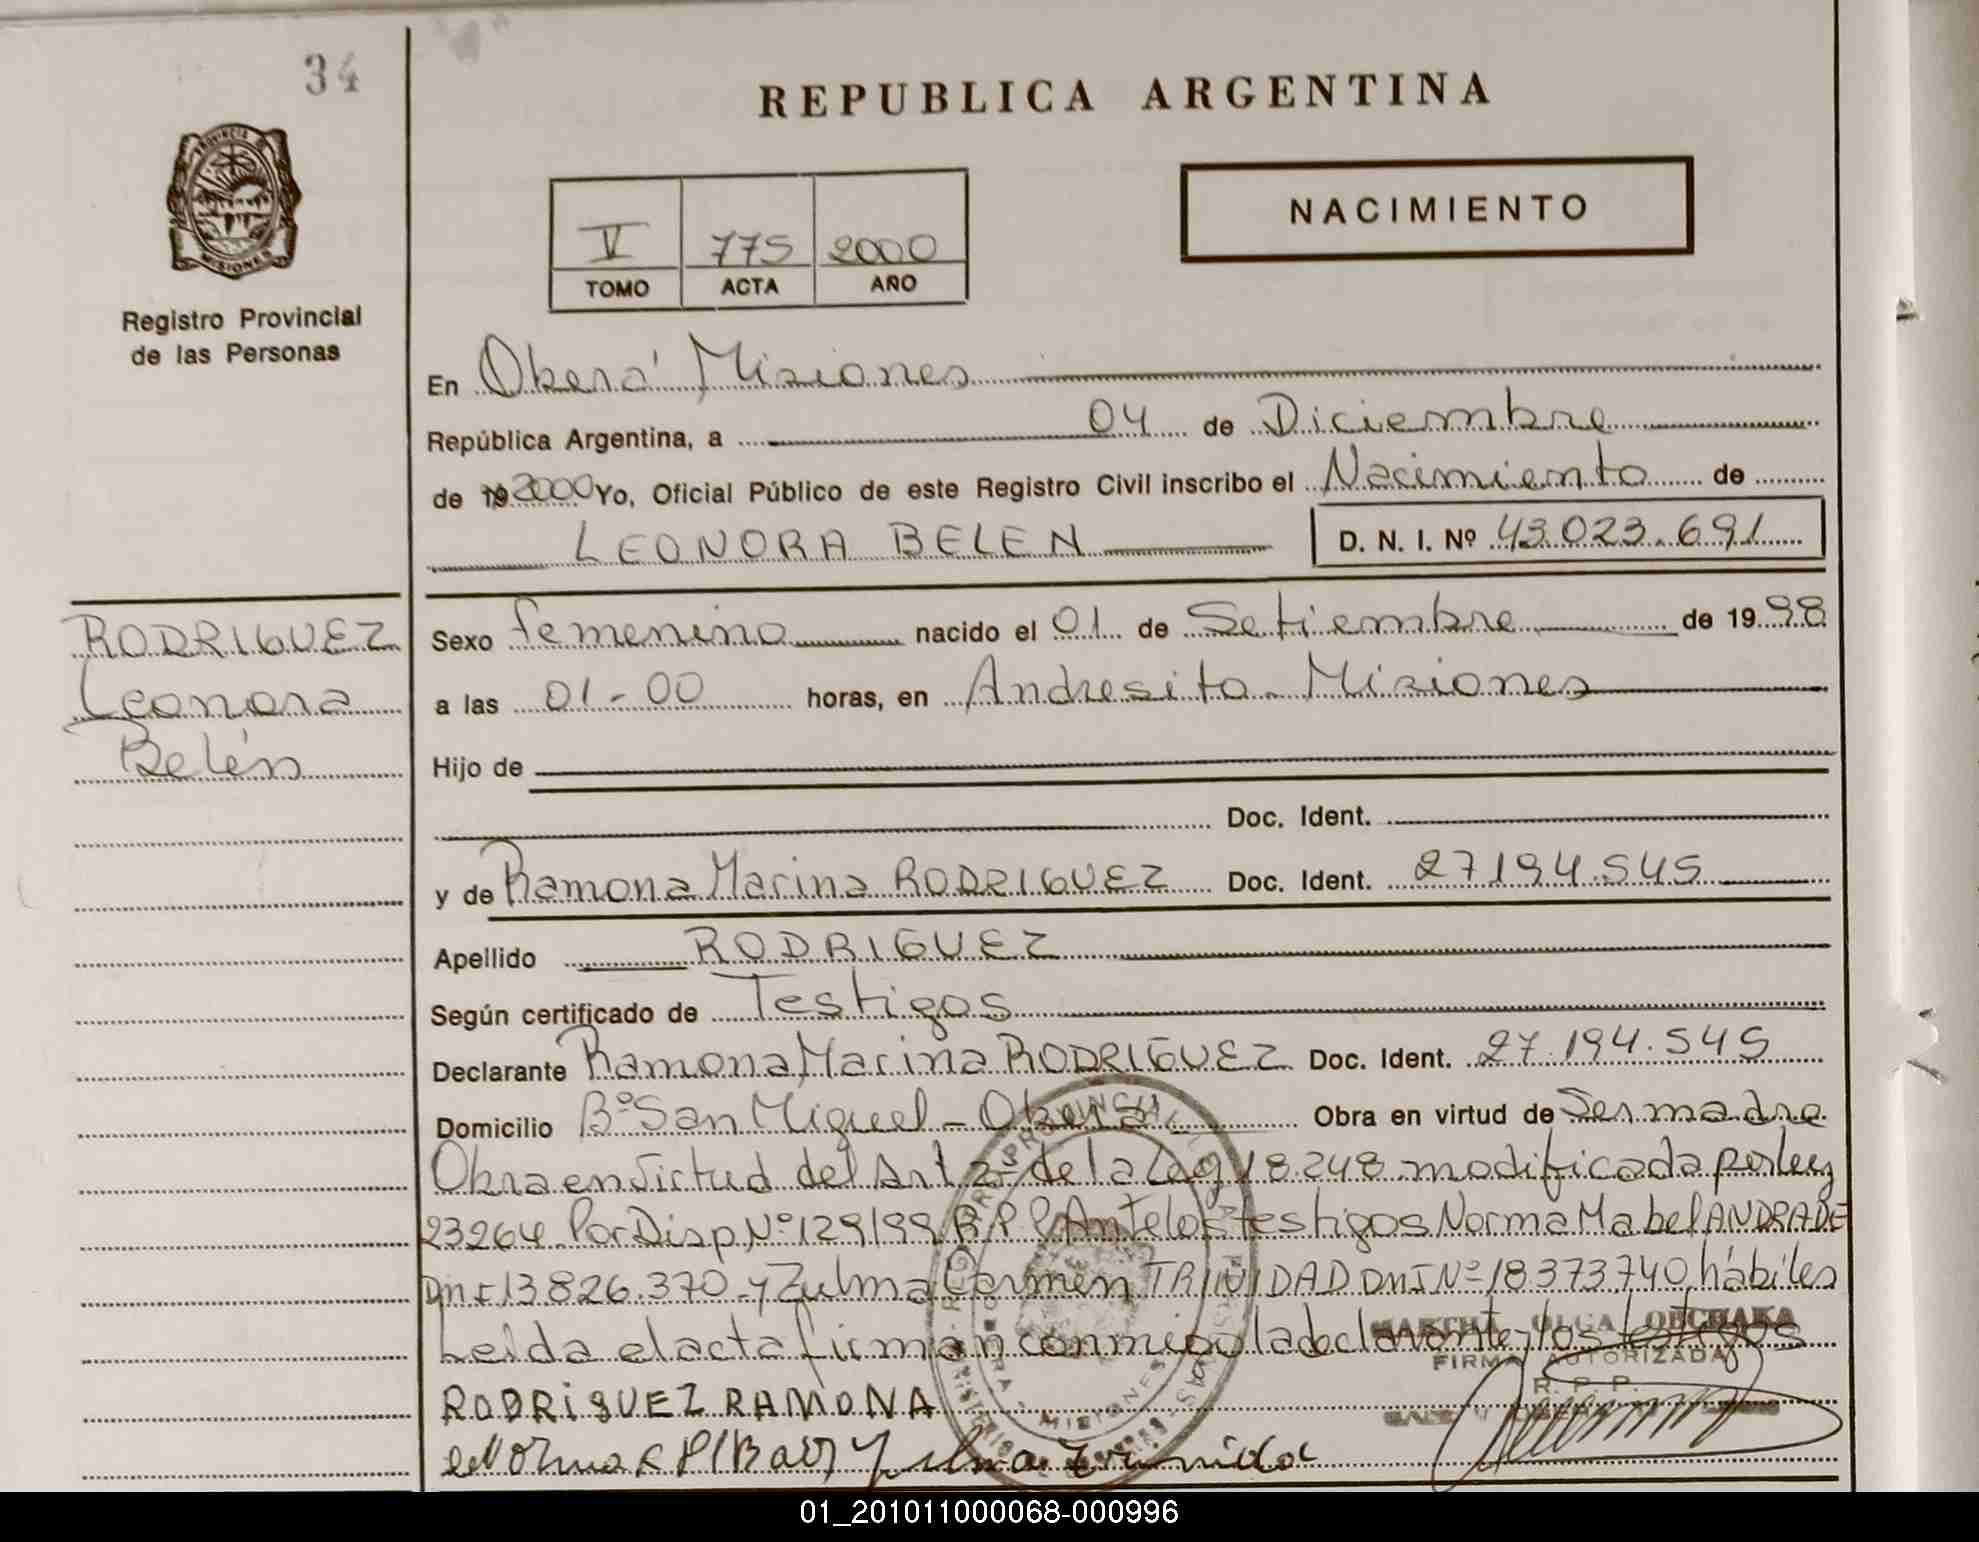 34
REPUBLICA ARGENTINA
PROVINCIA
MISIONES
Registro Provincial
de las Personas
V 775 2000
TOMO ACTA AÑO
NACIMIENTO
En Oberá Misiones
República Argentina, a 04 de Diciembre
de 19 2000 Yo, Oficial Público de este Registro Civil inscribo el Nacimiento de
LEONORA BELEN D. N. I. Nº 43.023.691
RODRIGUEZ
Leonora
Belén
Sexo femenino nacido el 01 de Setiembre de 1998
a las 01-00 horas, en Andresito - Misiones
Hijo de
Doc. Ident.
y de Ramona Marina RODRIGUEZ Doc. Ident. 27194.545
Apellido RODRIGUEZ
Según certificado de Testigos
Declarante Ramona Marina RODRIGUEZ Doc. Ident. 27.194.545
Domicilio Bº San Miguel - Oberá Obra en virtud de Ser madre
Obra en virtud del Art 2º de la Ley 18.248 modificada por ley
23264 Por Disp Nº 129/99 R.P.P. Ante los testigos Norma Mabel ANDRADE
DNI 13.826.370 - y Zulma Carmen TRINIDAD DNI Nº 18.373.740 hábiles
Leida el acta firman conmigo la declarante y los testigos
MARTHA OLGA OBCHAKA
FIRMA AUTORIZADA
R. P. P.
RODRiGUEZ RAMONA
01_201011000068-000996